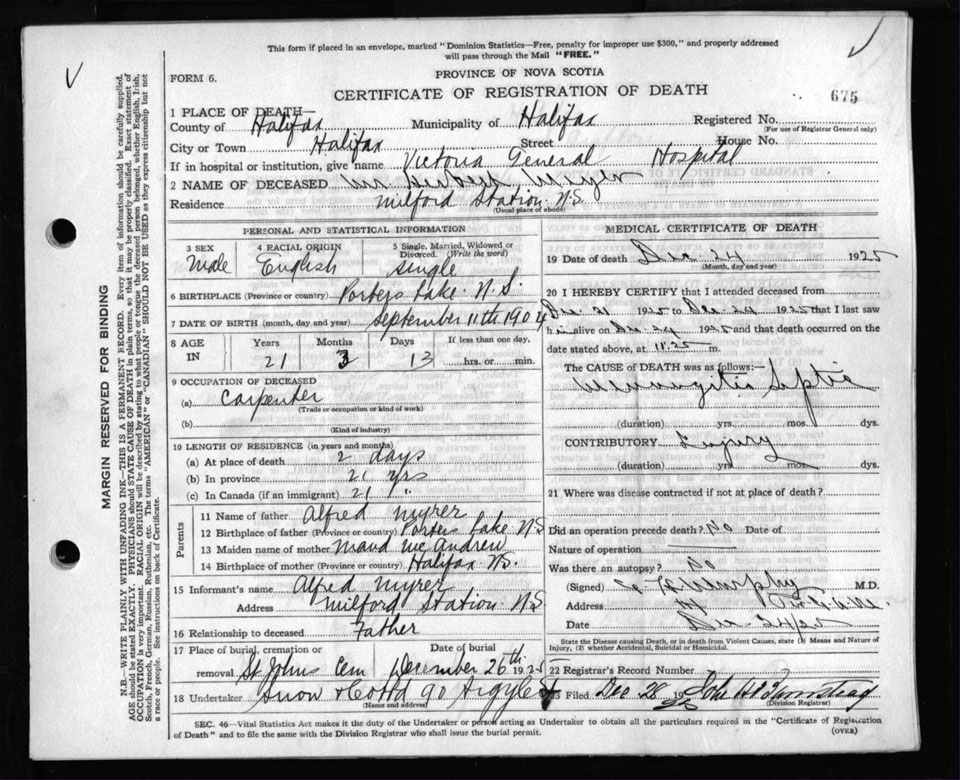 This form if placed in an envelope, marked "Dominion Statistics—Free, penalty for improper use $300," and properly addressed
will pass through the Mail "FREE."
FORM 6.
PROVINCE OF NOVA SCOTIA
CERTIFICATE OF REGISTRATION OF DEATH
675
1 PLACE OF DEATH—
County of Halifax Municipality of Halifax Registered No.
(For use of Registrar General only)
City or Town Halifax Street House No.
If in hospital or institution, give name Victoria General Hospital
2 NAME OF DECEASED Mr. Herbert Myer
Residence Milford Station N.S.
(Usual place of abode)
PERSONAL AND STATISTICAL INFORMATION
3 SEX 4 RACIAL ORIGIN 5 Single, Married, Widowed or Divorced. (Write the word)
Male English single
6 BIRTHPLACE (Province or country) Porters Lake. N.S.
7 DATE OF BIRTH (month, day and year) September 11th 1904
8 AGE IN Years Months Days If less than one day,
21 3 13 hrs. or min.
9 OCCUPATION OF DECEASED
(a) Carpenter
(Trade or occupation or kind of work)
(b)
(Kind of industry)
10 LENGTH OF RESIDENCE (in years and months)
(a) At place of death 2 days
(b) In province 21 yrs
(c) In Canada (if an immigrant) 21 "
Parents
11 Name of father Alfred Myrer
12 Birthplace of father (Province or country) Porters Lake N.S
13 Maiden name of mother Maud McAndrew
14 Birthplace of mother (Province or country) Halifax N.S.
15 Informant's name Alfred Myrer
Address Milford Station N.S
16 Relationship to deceased Father
17 Place of burial, cremation or removal Date of burial
St Johns Cem December 26th 1925
18 Undertaker Snow & Co Ltd 90 Argyle St
(Name and address)
MEDICAL CERTIFICATE OF DEATH
19 Date of death Dec 24 1925
(Month, day and year)
20 I HEREBY CERTIFY that I attended deceased from
Dec 21 1925 to Dec 24 1925 that I last saw
him alive on Dec 24 1925 and that death occurred on the
date stated above, at 11.25 m.
The CAUSE of DEATH was as follows:—
Meningitis Septic
(duration) yrs. mos. dys.
CONTRIBUTORY Injury
(duration) yrs. mos. dys.
21 Where was disease contracted if not at place of death?
Did an operation precede death? No Date of
Nature of operation
Was there an autopsy? No
(Signed) Murphy M.D.
Address
Date Dec
State the Disease causing Death, or in death from Violent Causes, state (1) Means and Nature of
Injury, (2) whether Accidental, Suicidal or Homicidal.
22 Registrar's Record Number
Filed Dec 26 1925 John A
(Division Registrar)
SEC. 46—Vital Statistics Act makes it the duty of the Undertaker or person acting as Undertaker to obtain all the particulars required in the "Certificate of Registration
of Death" and to file the same with the Division Registrar who shall issue the burial permit.
(OVER)
MARGIN RESERVED FOR BINDING
N.B.—WRITE PLAINLY WITH UNFADING INK—THIS IS A PERMANENT RECORD. Every item of information should be carefully supplied.
AGE should be stated EXACTLY. PHYSICIANS should STATE CAUSE OF DEATH in plain terms, so that it may be properly classified. Exact statement of
OCCUPATION is very important. RACIAL ORIGIN will be described by stating to what people or tongue the deceased person belonged, whether English, Irish,
Scotch, French, German, Russian, Ruthenian, etc. The terms "AMERICAN" or "CANADIAN" SHOULD NOT BE USED as they express citizenship but not
a race or people. See instructions on back of Certificate.